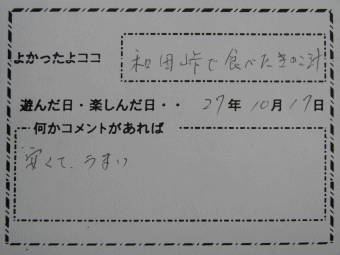 よかったよココ 和田峠で食べたきのこ汁
遊んだ日・楽しんだ日・・ 27年10月17日
何かコメントがあれば
安くて、うまい